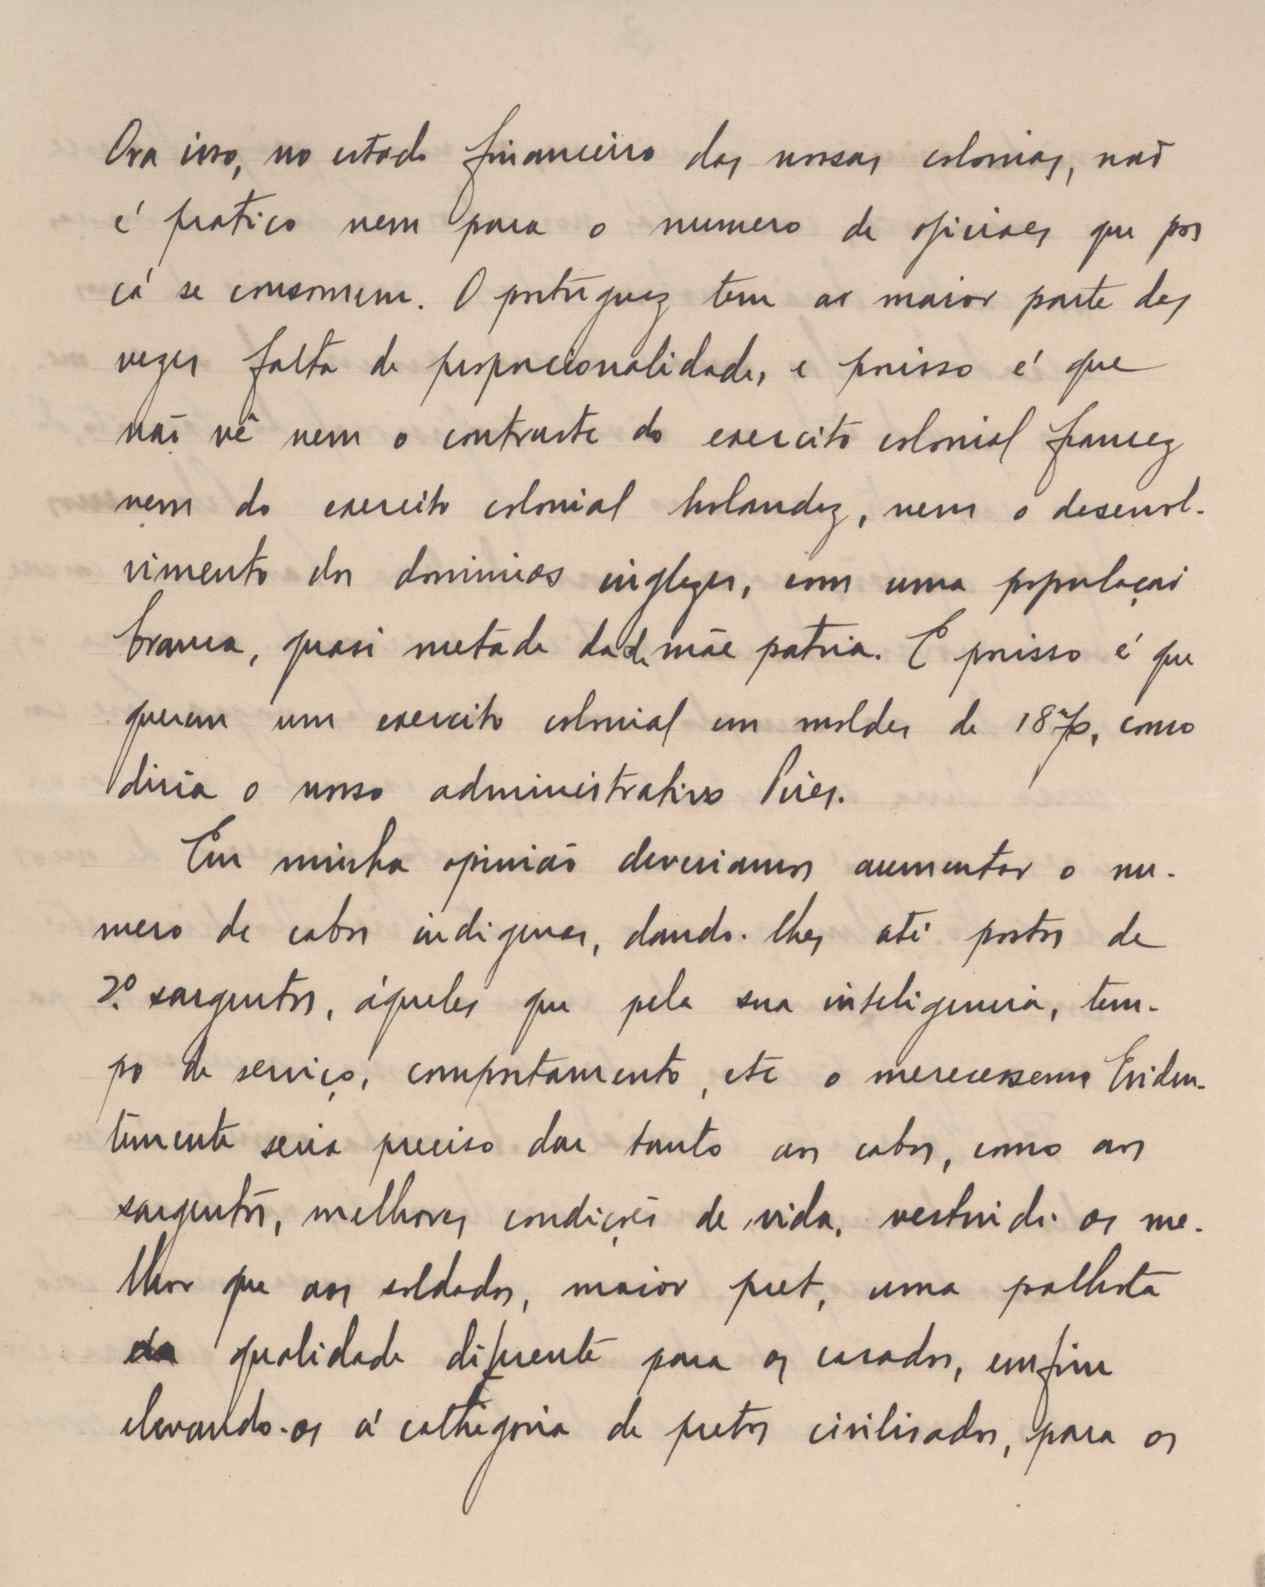 Ora isso, no estado financeiro das nossas colonias, não
é pratico nem para o numero de oficiaes que por
cá se consomem. O portuguez tem as maior parte das
vezes falta de proporcionalidade, e porisso é que
não vê nem o contraste do exercito colonial francez
nem do exercito colonial holandez, nem o desenvol-
vimento dos dominios inglezes, com uma população
branca, quasi metade da de mãe patria. E porisso é que
querem um exercito colonial em moldes de 1870, como
diria o nosso administrativo Pires.
Em minha opinião deveriamos aumentar o nu-
mero de cabos indigenas, dando-lhes até postos de
2.º sargentos, áqueles que pela sua inteligencia, tem-
po de serviço, comportamento, etc o merecessem Eviden-
temente seria preciso dar tanto aos cabos, como aos
sargentos, melhores condições de vida, vestindo-os me-
lhor que aos soldados, maior pret, uma palhota
de qualidade diferente para os casados, emfim
elevando-os á cathegoria de pretos civilisados, para os